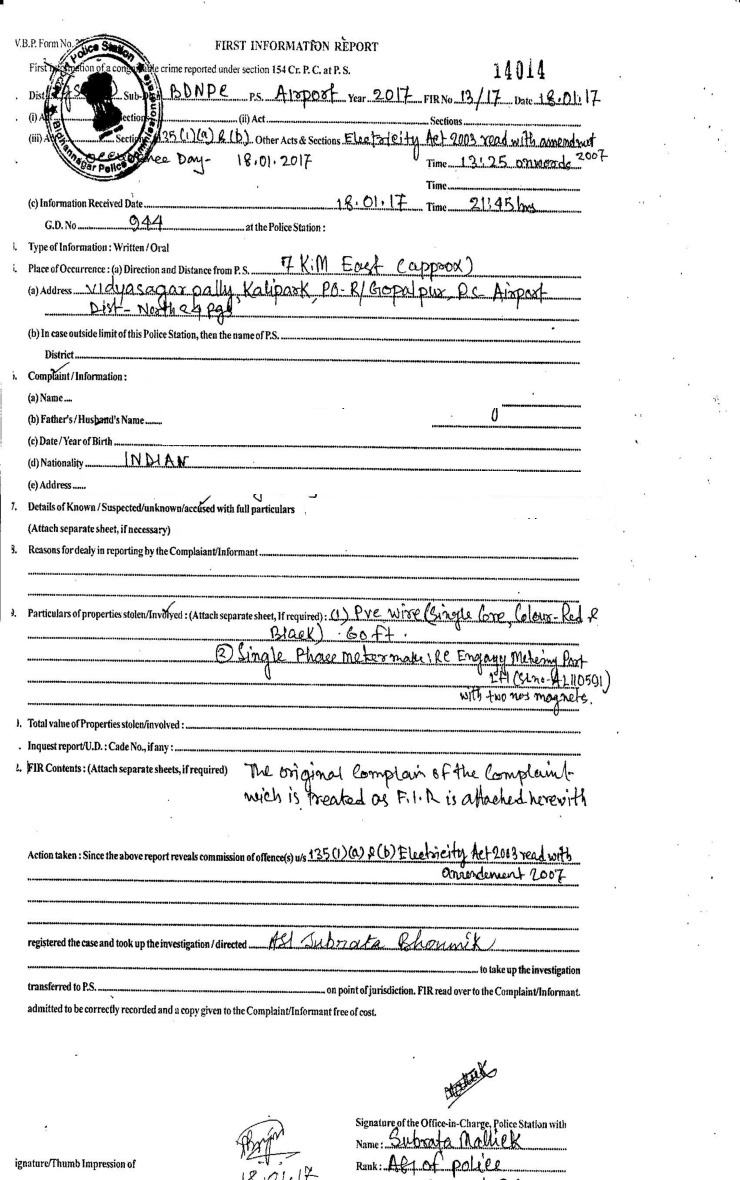 V.B.P. Form No.
FIRST INFORMATION REPORT
First Information of a cognizable crime reported under section 154 Cr. P. C. at P. S.
14014
Dist Sub-Div BDNPC P.S. Airport Year 2017 FIR No 13/17 Date 18.01.17
(i) Act Section (ii) Act Sections
(iii) Act Section 135(1)(a) & (b). Other Acts & Sections Electricity Act 2003 read with amendment 2007
Occurrence Day- 18.01.2017 Time 13:25 onwords
Time
(c) Information Received Date 18.01.17 Time 21:45 hrs
G.D. No 944 at the Police Station :
Type of Information : Written / Oral
Place of Occurrence : (a) Direction and Distance from P. S. 7 KiM East (approx)
(a) Address vidyasagar pally, Kalipark, PO- R/Gopalpur, P.S. Airport
Dist- North 24 Pgs
(b) In case outside limit of this Police Station, then the name of P.S.
District
Complaint / Information :
(a) Name
(b) Father's / Husband's Name
(c) Date / Year of Birth
(d) Nationality INDIAN
(e) Address
7. Details of Known / Suspected/unknown/accused with full particulars
(Attach separate sheet, if necessary)
8. Reasons for dealy in reporting by the Complaiant/Informant
9. Particulars of properties stolen/Involved : (Attach separate sheet, If required) : (1) Pvc wire (Single Core, Colour-Red &
Black) 60 ft.
(2) Single Phase meter make:
(Sl no-AL110591)
with two nos magnets.
Total value of Properties stolen/involved :
Inquest report/U.D. : Cade No., if any :
FIR Contents : (Attach separate sheets, if required) The original Complain of the Complaint
wich is treated as F.I.R is attached herewith
Action taken : Since the above report reveals commission of offence(s) u/s 135(1)(a) & (b) Electricity Act 2003 read with
amendement 2007
registered the case and took up the investigation / directed ASI Subrata Bhoumik
to take up the investigation
transferred to P.S. on point of jurisdiction. FIR read over to the Complaint/Informant.
admitted to be correctly recorded and a copy given to the Complaint/Informant free of cost.
Signature of the Office-in-Charge, Police Station with
Name : Subrata Mallick
ignature/Thumb Impression of
18.01.17
Rank : of police